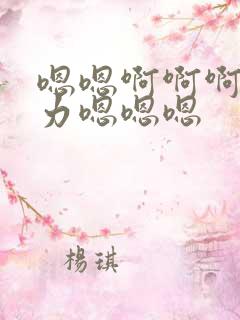 嗯嗯啊啊啊
力嗯嗯嗯
楊琪